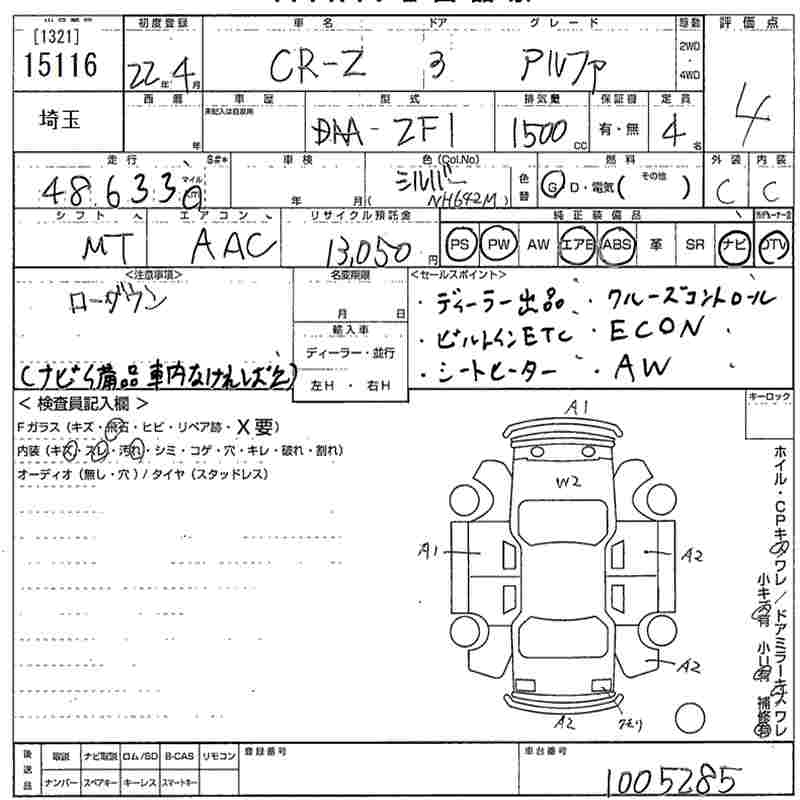 [1321]
15116
初度登録 車名 ドア グレード 駆動 評価点
22年4月 CR-Z 3 アルファ 2WD・4WD 4
埼玉
西暦 車歴 型式 排気量 保証書 定員
年 未記入は自家用 DAA-ZF1 1500cc 有・無 4名
走行 S#* 車検 色(Col.No) 燃料 外装 内装
48,633.0 マイル 年 月 シルバー (NH642M) 色替 G D・電気( その他 ) C C
シフト エアコン リサイクル預託金 純正装備品
MT AAC 13,050円 PS PW AW エアB ABS 革 SR ナビ TV
<注意事項> 名変期限 <セールスポイント>
ローダウン
月 日
・ディーラー出品 ・クルーズコントロール
輸入車
・ビルトインETC ・ECON
ディーラー・並行
(ナビイ備品車内なければ欠) ・シートヒーター ・AW
左H ・ 右H
< 検査員記入欄 >
キーロック
Fガラス (キズ・飛石・ヒビ・リペア跡・X要)
内装 (キズ・スレ・汚れ・シミ・コゲ・穴・キレ・破れ・割れ)
オーディオ (無し・穴) / タイヤ (スタッドレス)
A1
W2
A1
A2
A2
A2
クモリ
ホイル・CPキズワレ/ドアミラーキズワレ
小キズ有 小U有 補修有
後送品 取説 ナビ取説 ロム/SD B-CAS リモコン 登録番号 車台番号
ナンバー スペアキー キーレス スマートキー
1005285